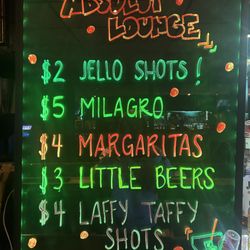 ABSOLUT
LOUNGE
$2 JELLO SHOTS!
$5 MILAGRO
$4 MARGARITAS
$3 LITTLE BEERS
$4 LAFFY TAFFY
SHOTS